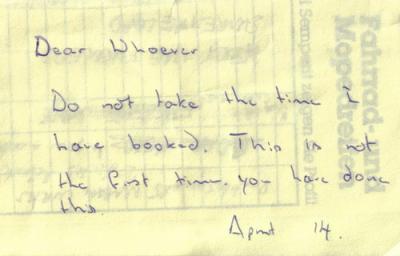 Dear Whoever
Do not take the time I
have booked. This is not
the first time. you have done
this.
14.